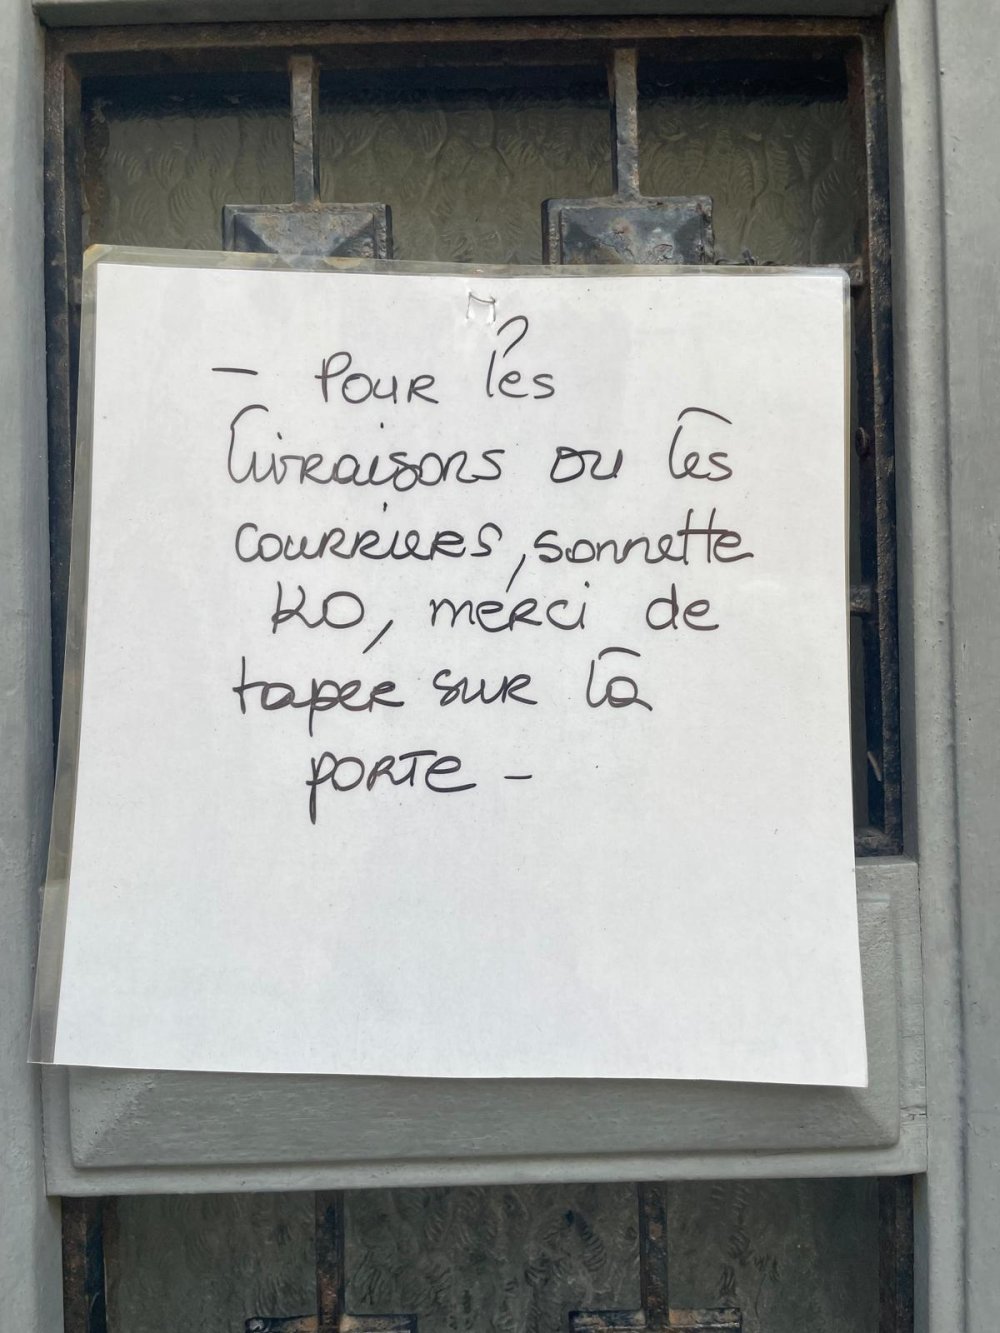 - Pour les
livraisons ou les
courriers, sonnette
KO, merci de
taper sur la
porte -